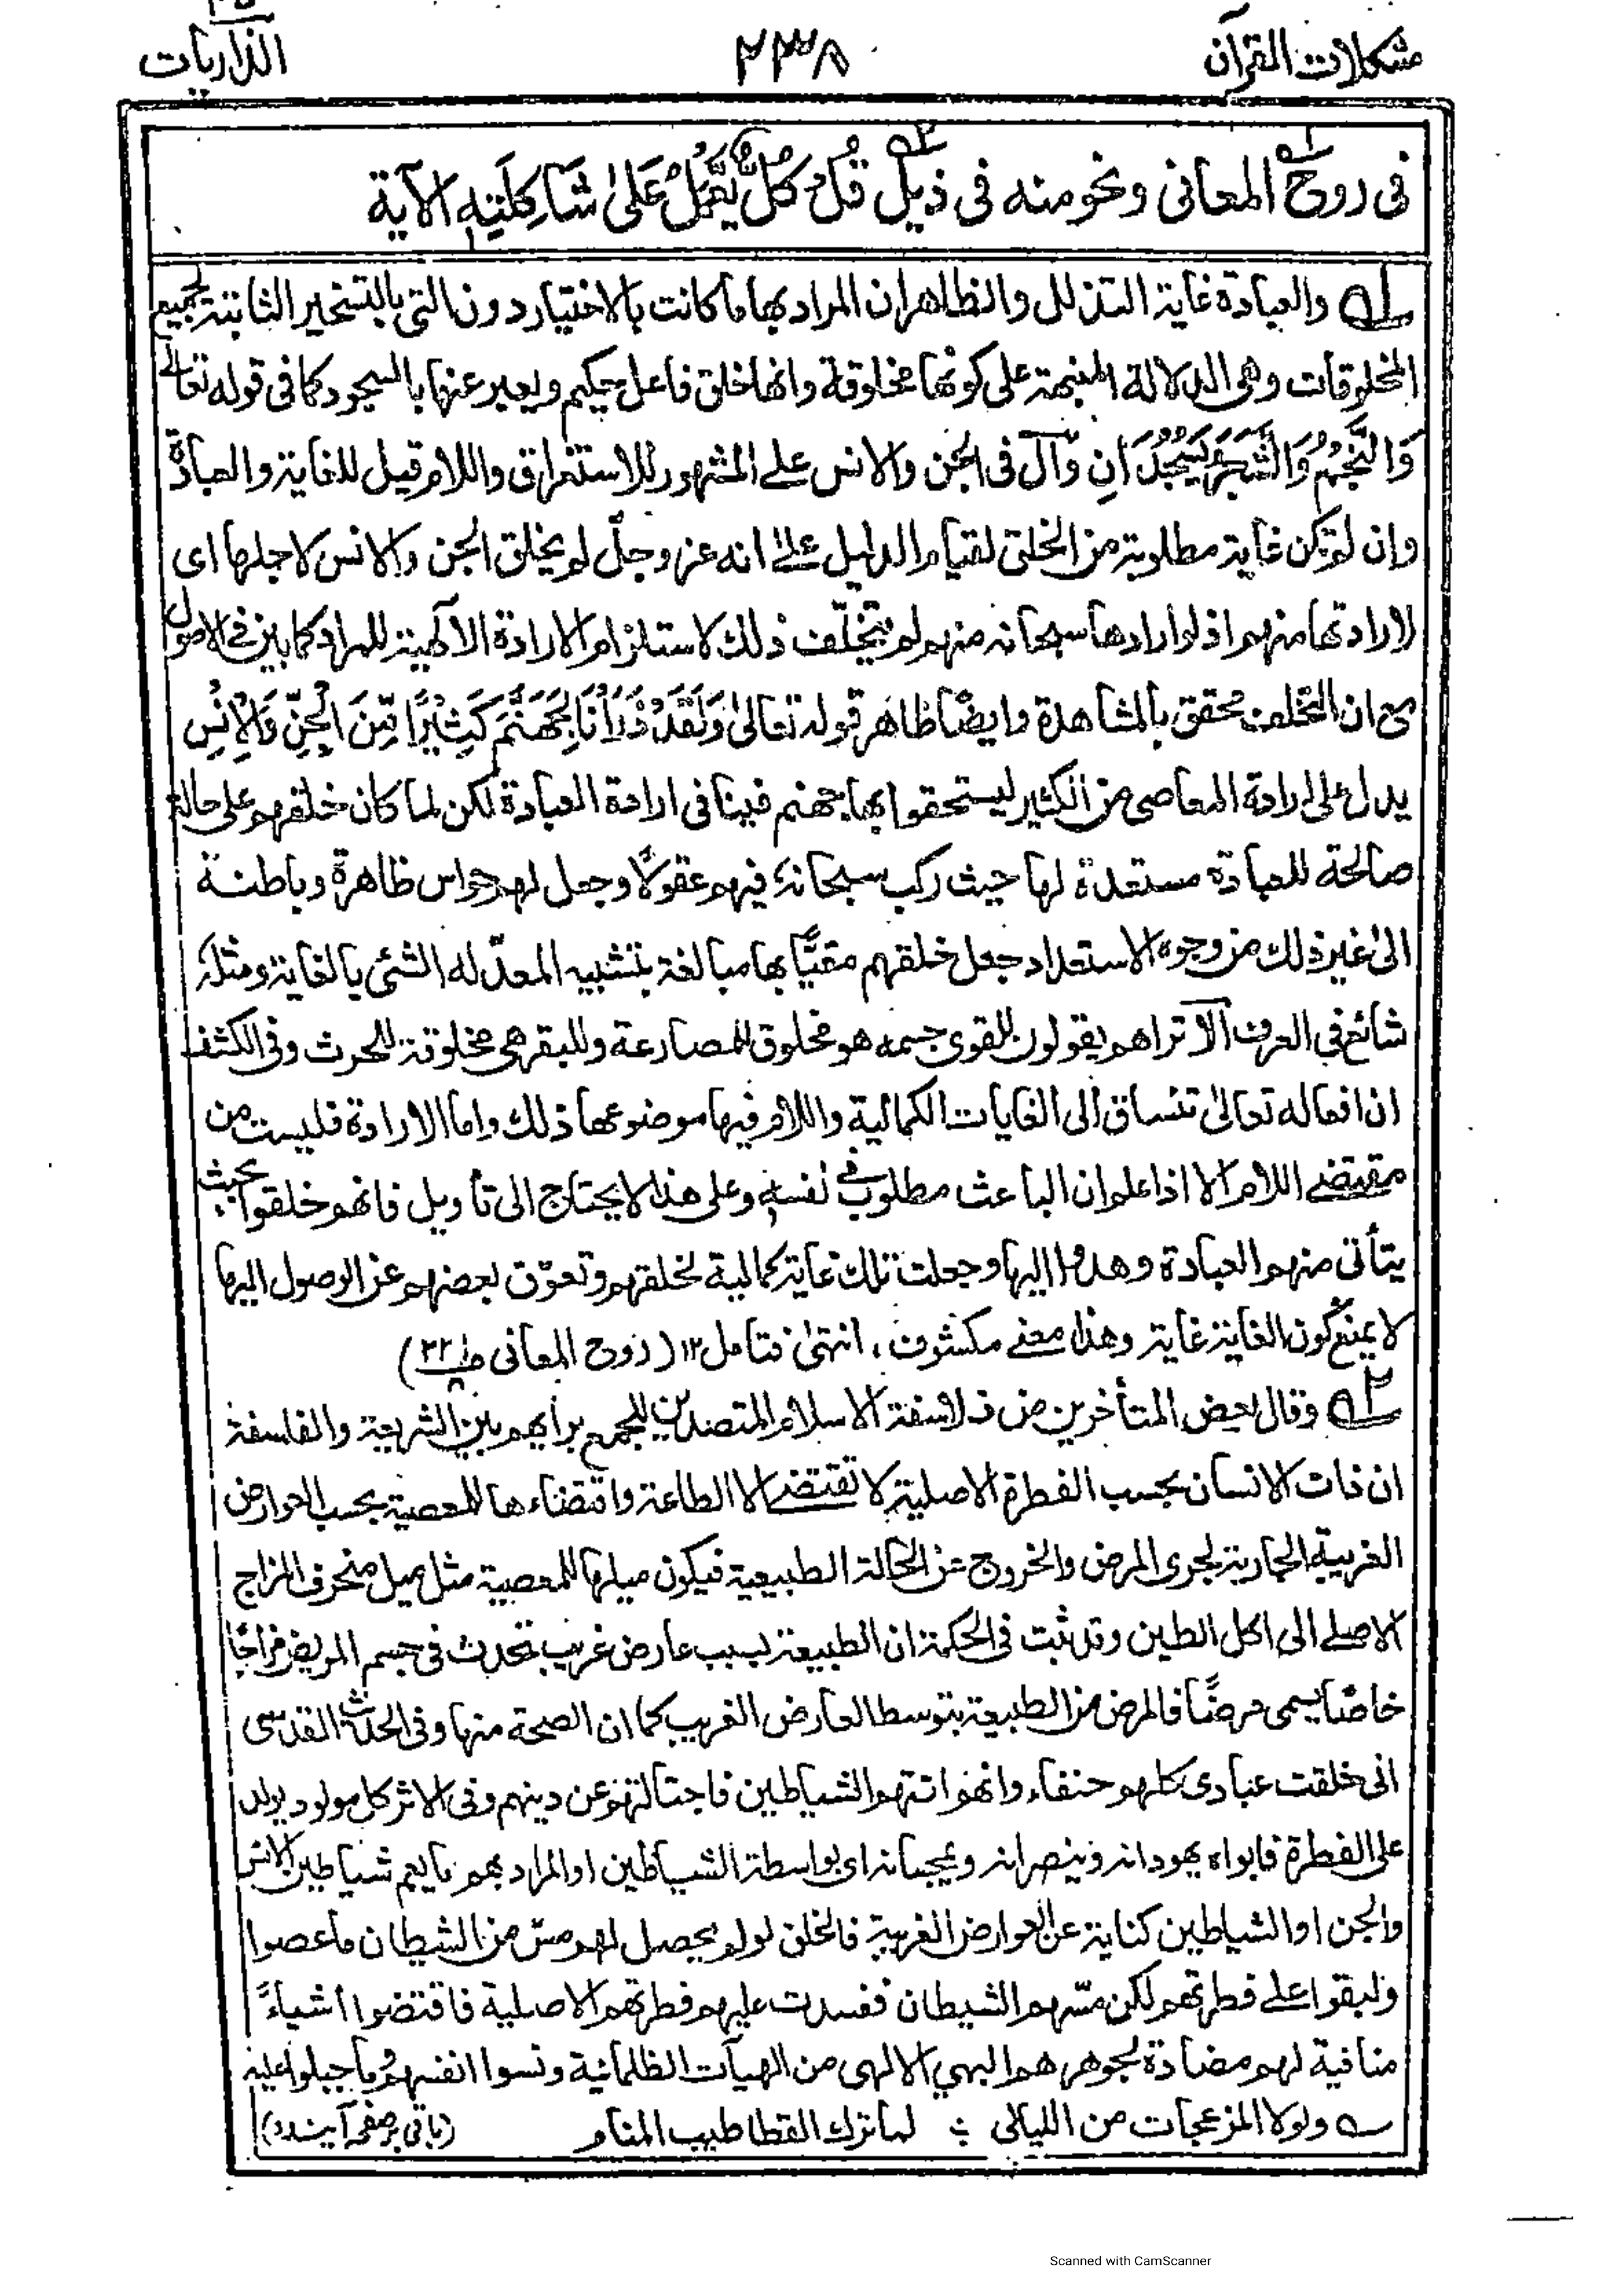 مشکلات القرآن
۲۳۸
الذاریات
فی روح المعانی ونحو منه فی ذیل قُلْ كُلٌّ يَّعْمَلُ عَلىٰ شَاكِلَتِهٖ الآية
۱ه والعبادة غاية التذلل والظاهر ان المراد بها ما كانت بالاختيار دون التى بالتسخير الثابتة لجميع
المخلوقات وهى الدلالة المنبهة على كونها مخلوقة وانها خلق فاعل حكيم ويعبر عنها بالسجود كما فى قوله تعالى
وَالنَّجْمُ وَالشَّجَرُ يَسْجُدَانِ وآل فى الجن والانس على المشهور للاستغراق واللام قيل للغاية والعبادة
وان لم تكن غاية مطلوبة من الخلق لقيام الدليل على انه عز وجلّ لم يخلق الجن والانس لاجلها اى
لارادتها منهم اذ لو ارادها سبحانه منهم لم يتخلّف ذلك لاستلزام الارادة الآلهية للمراد كما بين فى الاصول
مع ان التخلف محقق بالمشاهدة وايضًا ظاهر قوله تعالىٰ وَلَقَدْ ذَرَاْنَا لِجَهَنَّمَ كَثِيْرًا مِّنَ الْجِنِّ وَالْاِنْسِ
يدل على ارادة المعاصى من الكثير ليستحقوا بها جهنم فينافى ارادة العبادة لكن لما كان خلقهم على حالة
صالحة للعبادة مستعدة لها حيث ركب سبحانه فيهم عقولًا وجعل لهم حواس ظاهرة وباطنة
الىٰ غير ذلك من وجوه الاستعداد جعل خلقهم مغيًّا بها مبالغة بتشبيه المعدّ له الشئ بالغاية ومثله
شائع فى العرف ألا تراهم يقولون للقوى جسمه هو مخلوق للمصارعة وللبقر هى مخلوقة للحرث وفى الكشف
ان افعاله تعالىٰ تنساق الى الغايات الكمالية واللام فيها موضوعها ذلك واما الارادة فليست من
مقتضى اللام الا اذا علم ان الباعث مطلوب فى نفسه وعلى هذا لا يحتاج الى تأويل فانهم خلقوا بحيث
يتأتى منهم العبادة وهدوا اليها وجعلت تلك غاية كمالية لخلقهم وتعوّق بعضهم عن الوصول اليها
لا يمنع كون الغاية غاية وهذا معنى مكشوف، انتهىٰ فتامل ۱۲ (روح المعانى
۲ه وقال بعض المتأخرين من فلاسفة الاسلام المتصدين للجمع برأيهم بين الشريعة والفلسفة
ان ذات الانسان بحسب الفطرة الاصلية لا تقتضى الا الطاعة واقتضاءها للمعصية بحسب العوارض
الغريبة الجارية مجرى المرض والخروج عن الحالة الطبيعية فيكون ميلها للمعصية مثل ميل منحرف المزاج
الاصلى الى اكل الطين وقد ثبت فى الحكمة ان الطبيعة بسبب عارض غريب تحدث فى جسم المريض مزاجًا
خاصًا يسمى مرضًا فالمرض من الطبيعة بتوسط العارض الغريب كما ان الصحة منها وفى الحديث القدسى
انى خلقت عبادى كلهم حنفاء وانهم اتتهم الشياطين فاجتالتهم عن دينهم وفى الاثر كل مولود يولد
على الفطرة فابواه يهودانه وينصرانه ويمجسانه اى بواسطة الشياطين او المراد بهم ما يعم شياطين الانس
والجن او الشياطين كناية عن العوارض الغريبة فالخلق لو لم يحصل لهم مسّ من الشيطان ما عصوا
ولبقوا على فطرتهم لكن مسّهم الشيطان ففسدت عليهم فطرتهم الاصلية فاقتضوا أشياءً
منافية لهم مضادة لجوهر هم البهي الالهى من الهيآت الظلمانية ونسوا انفسهم وما جبلوا عليه
ے ولولا المزعجات من الليالى ؛ لما ترك القطا طيب المنام (باقی بر صفحه آینده)
Scanned with CamScanner